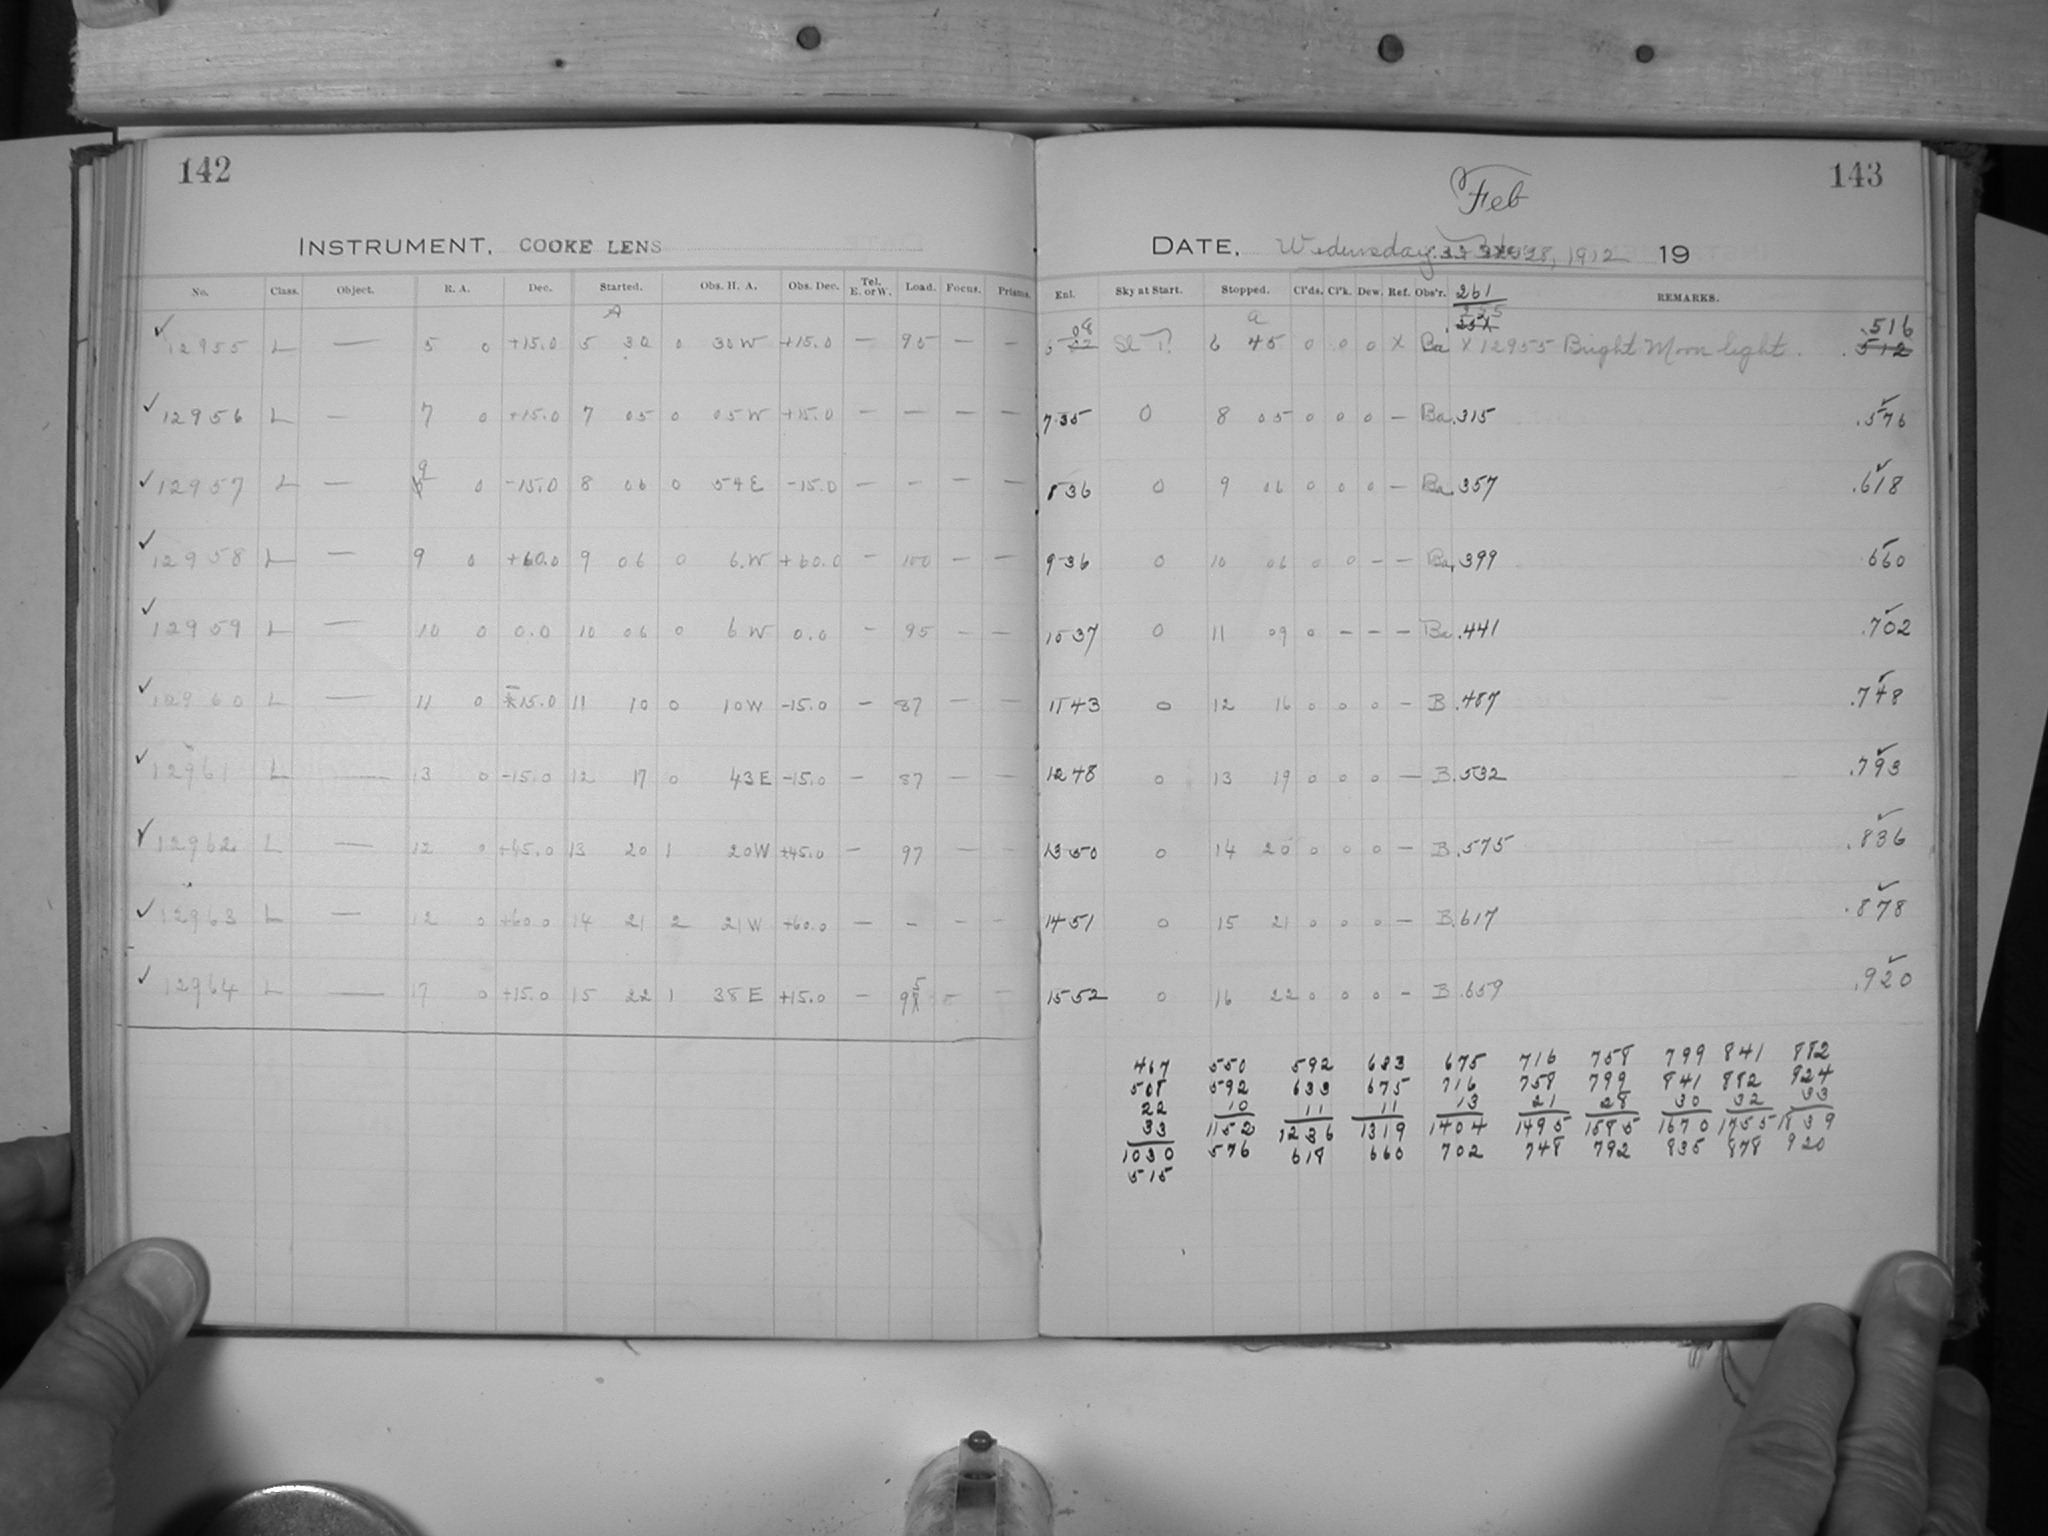 142
INSTRUMENT, COOKE LENS
No. Class. Object. R. A. Dec. Started. Obs. H. A. Obs. Dec. Tel. E. or W. Load. Focus. Prisms.
A
12955 L — 5 0 +15.0 5 30 0 30 W +15.0 — 95 — —
12956 L — 7 0 +15.0 7 05 0 05 W +15.0 — — — —
12957 L — 9 0 -15.0 8 06 0 54 E -15.0 — — — —
12958 L — 9 0 +60.0 9 06 0 6 W +60.0 — 100 — —
12959 L — 10 0 0.0 10 06 0 6 W 0.0 — 95 — —
12960 L — 11 0 -15.0 11 10 0 10 W -15.0 — 87 — —
12961 L — 13 0 -15.0 12 17 0 43 E -15.0 — 87 — —
12962 L — 12 0 +45.0 13 20 1 20 W +45.0 — 97 — —
12963 L — 12 0 +60.0 14 21 2 21 W +60.0 — — — —
12964 L — 17 0 +15.0 15 22 1 38 E +15.0 — 95 — —
143
Feb
DATE, Wednesday 28, 1912 19
Enl. Sky at Start. Stopped. Cl'ds. Cl'k. Dew. Ref. Obs'r. 261 REMARKS.
a
6 08 Sl T. 6 45 0 0 0 X Ba X 12955 Bright Moon light. .516
.512
7 35 0 8 05 0 0 0 — Ba .315 .576
8 36 0 9 06 0 0 0 — Ba .357 .618
9 36 0 10 06 0 0 — — Ba .399 660
10 37 0 11 09 0 — — — Ba .441 .702
11 43 0 12 16 0 0 0 — B .487 .748
12 48 0 13 19 0 0 0 — B .532 .793
13 50 0 14 20 0 0 0 — B .575 .836
14 51 0 15 21 0 0 0 — B .617 .878
15 52 0 16 22 0 0 0 — B .659 .920
467 550 592 633 675 716 758 799 841 882
508 592 633 675 716 758 799 841 882 924
22 10 11 11 13 21 28 30 32 33
33 1152 1236 1319 1404 1495 1585 1670 1755 1839
1030 576 618 660 702 748 792 835 878 920
515